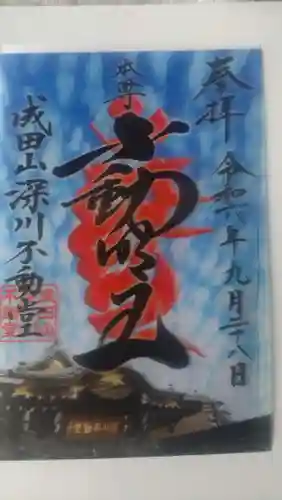 奉拝
令和六年九月二十八日
本尊
不動明王
成田山深川不動堂